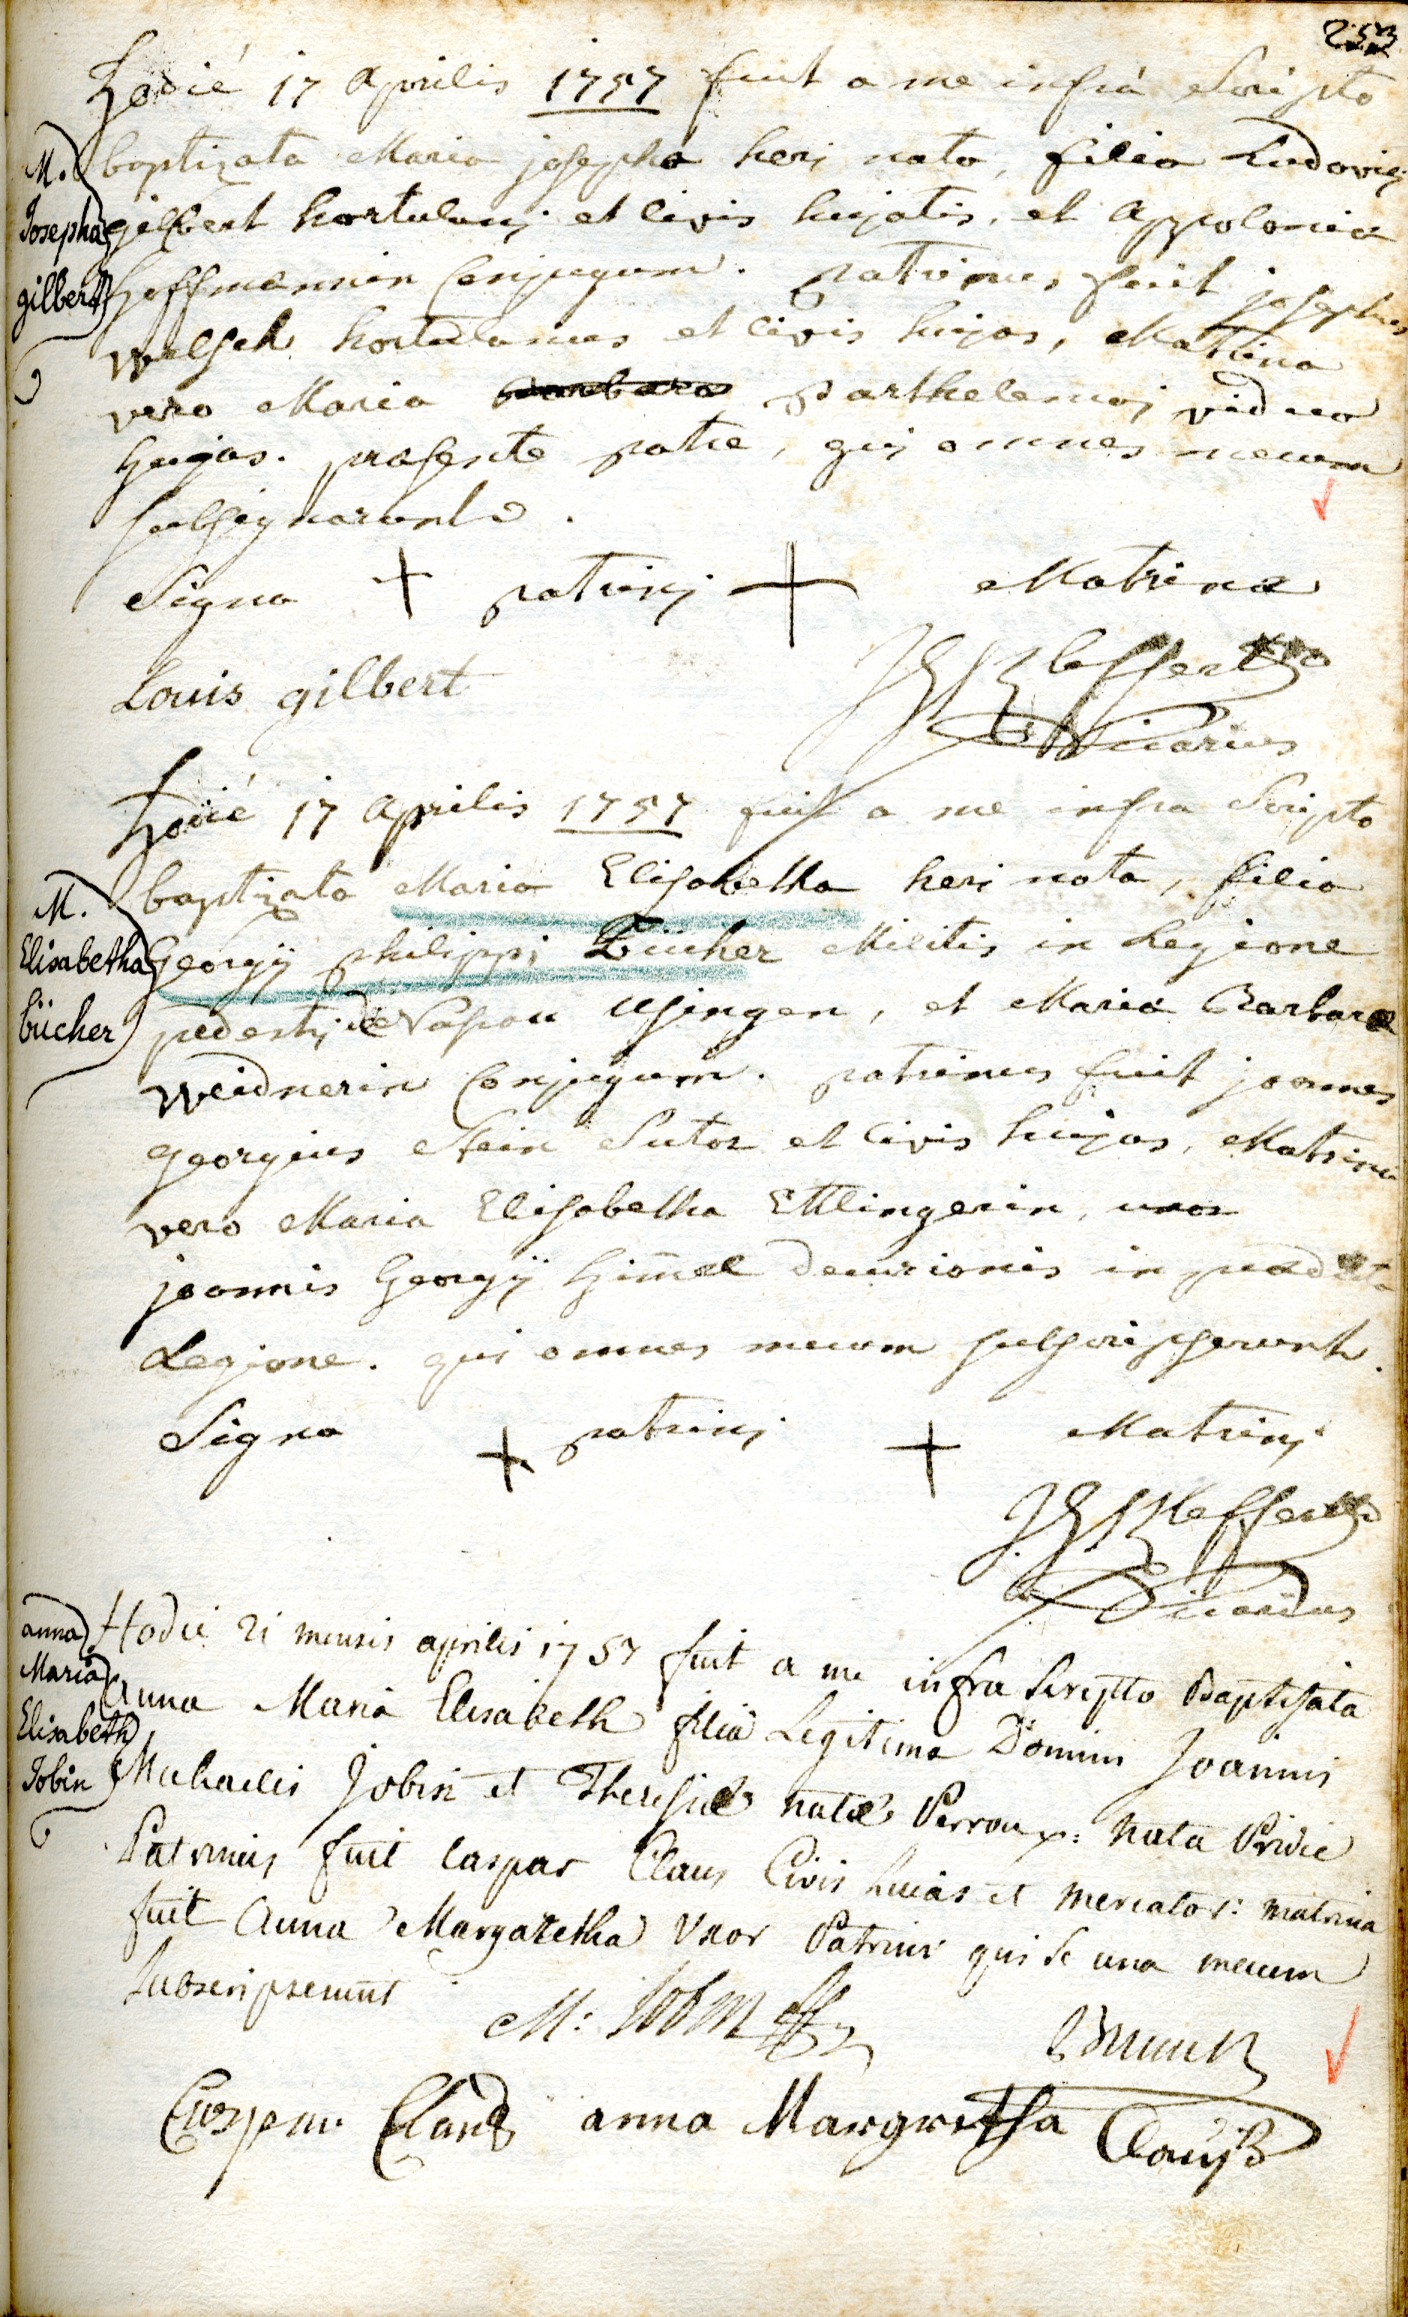 253
Hodié 17 aprilis 1757 fuit a me infrá Scripto
M. baptizata Maria josepha heri nata, filia Ludovicj
Josepha gilbert hortulanj et civis hujatis, et Appolonia
gilbert Hoffmannin Conjugum. patrinus fuit josephus
Welsch hortulanus et civis hujas, Matrina
vero Maria barbara parthelemoj vidua
hujas. præsente patre, qui omnes mecum
subsignarunt.
Signa + patrinj + Matrinæ
Louis gilbert
Vicarius
Hodié 17 aprilis 1757 fuit a me infra Scripto
M. baptizata Maria Elisabetha heri nata, filia
Elisabetha Georgÿ philippi Bücher Militis in Legione
bücher pedestrj de Nassau Usingen, et Maria Barbara
Weidnerin Conjugum. patrinus fuit joannes
georgius stein Sutor et Civis hujas, Matrina
vero Maria Elisabetha Ettlingerin, uxor
joannis Georgÿ Him̄el decurionis in prædicta
Legione. qui omnes mecum subscripserunt.
Signa + patrinj + Matrinj
Vicarius
anna Hodie 21 mensis aprilis 1757 fuit a me infra scripto Baptisata
Maria Anna Maria Elisabeth filia Legitima Domini Joannis
Elisabeth
Jobin Michaelis Jobin et Theresiæ natæ Perroux: nata Pridie
Patrinus fuit Caspar Claus Civis huias et mercator: matrina
fuit Anna Margaretha Uxor Patrini qui se una mecum
Subscripserunt
M: Jobin
Claus anna Margretha Clauß